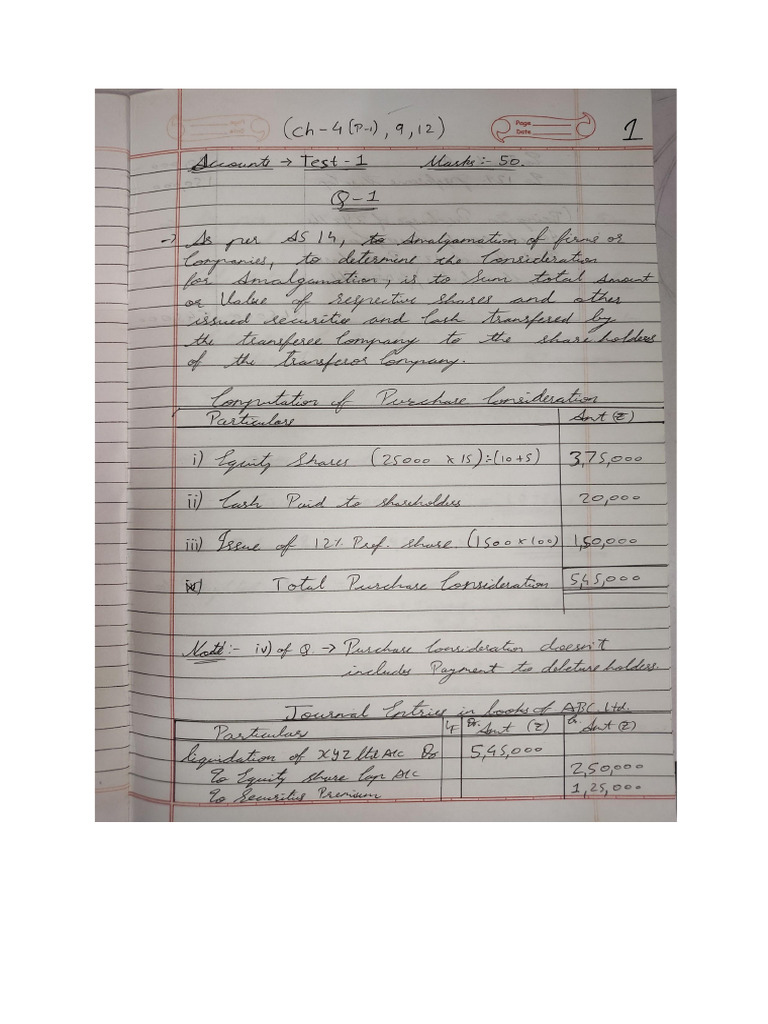 (Ch-4(P-1), 9, 12)
Page
Date
1
Accounts → Test-1 Marks:- 50.
Q-1
→ As per AS 14, to Amalgamation of firms or
Companies, to determine the Consideration
for Amalgamation, is to Sum total Amount
or Value of respective shares and other
issued securities and Cash transfered by
the transferee Company to the share holders
of the transferor Company.
Computation of Purchase Consideration
Particulars Amt (₹)
i) Equity Shares (25000 x 15) ÷ (10+5) 3,75,000
ii) Cash Paid to shareholders 20,000
iii) Issue of 12% Pref. share (1500 x 100) 1,50,000
Total Purchase Consideration 5,45,000
Note:- iv) of Q. → Purchase Consideration doesn't
includes Payment to debture holders.
Journal Entries in books of ABC Ltd.
Particular LF Dr. Amt (₹) Cr. Amt (₹)
Liquidation of XYZ Ltd A/c Dr 5,45,000
To Equity Share Cap A/c 2,50,000
To Securities Premium 1,25,000